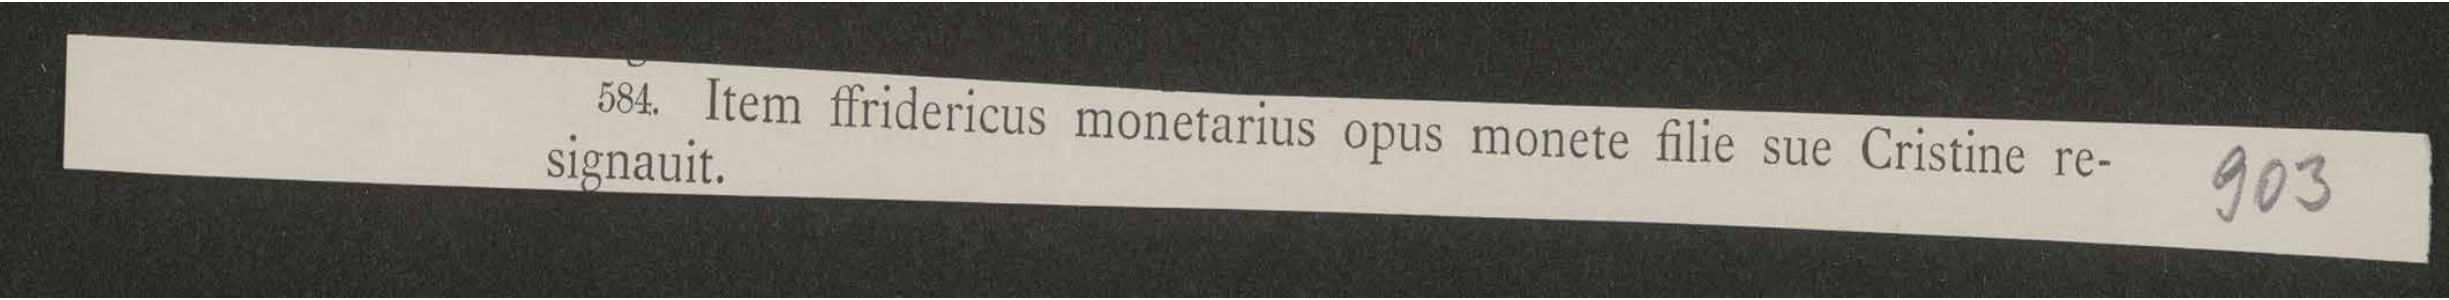 584. Item ffridericus monetarius opus monete filie sue Cristine re-
signauit.
903